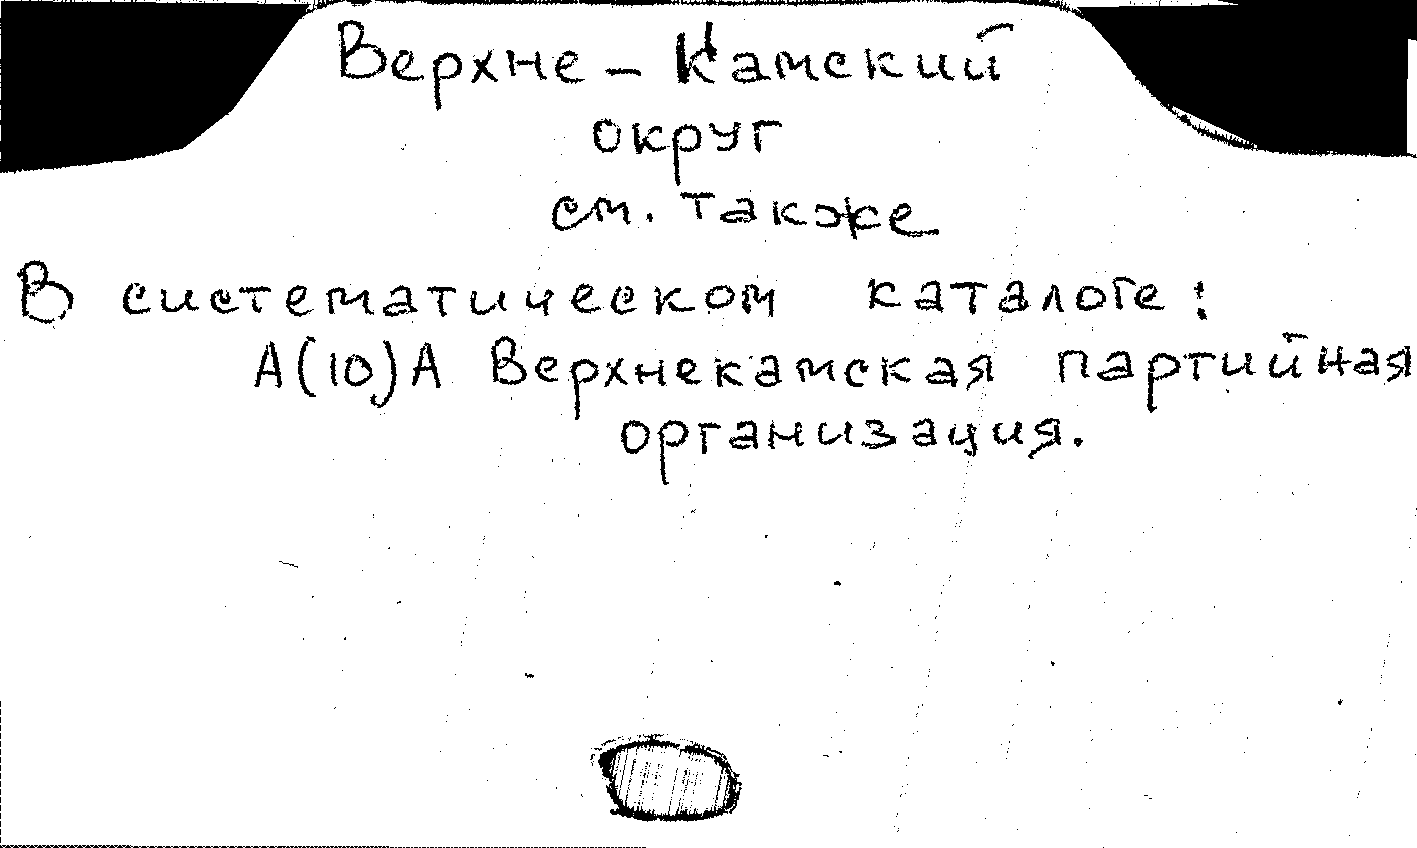 Верхне – Камский
округ
см. также
В систематическом каталоге:
А(10)А Верхнекамская партийная
организация.